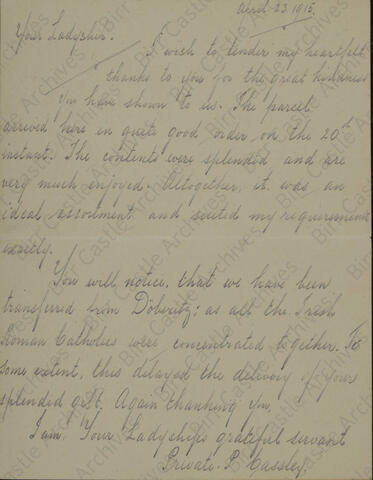 April 23 1915.
Your Ladyship.
I wish to tender my heartfelt
thanks to you for the great kindness
you have shown to us. The parcel
arrived here in quite good order on the 20th
instant. The contents were splendid and are
very much enjoyed. Altogether, it was an
ideal assortment and suited my requirements
exactly.
You will notice, that we have been
transferred from Döberitz; as all the Irish
Roman Catholics were concentrated together. To
some extent, this delayed the delivery of your
splendid gift. Again thanking you,
I am. Your Ladyship's grateful servant
Private. P. Cassley.
Birr Castle Archives